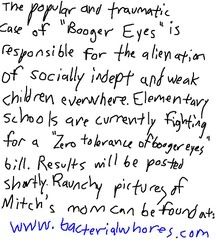 The popular and traumatic
case of "Booger Eyes" is
responsible for the alienation
of socially indept and weak
children everwhere. Elementary
schools are currently fighting
for a "Zero tolerance of booger eyes"
bill. Results will be posted
shortly. Raunchy pictures of
Mitch's mom can be found at:
www.bacterialwhores.com